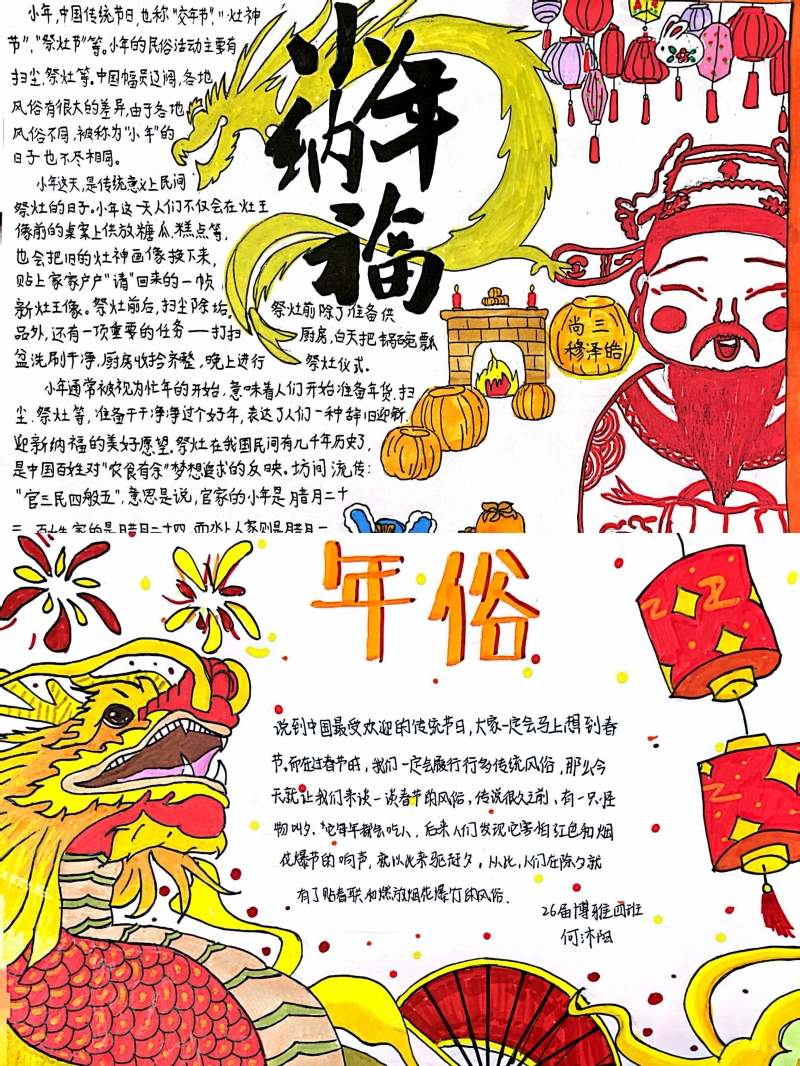 小年纳福
小年,中国传统节日,也称“交年节”,“灶神
节”,“祭灶节”等。小年的民俗活动主要有
扫尘,祭灶等。中国幅员辽阔,各地
风俗有很大的差异,由于各地
风俗不同,被称为“小年”的
日子也不尽相同。
小年这天,是传统意义上民间
祭灶的日子。小年这一天人们不仅会在灶王
像前的桌案上供放糖瓜、糕点等,
也会把旧的灶神画像接下来,
贴上家家户户“请”回来的一帧
新灶王像。祭灶前后,扫尘除垢。祭灶前除了准备供
品外,还有一项重要的任务——打扫厨房,白天把锅碗瓢
盆洗刷干净,厨房收拾齐整,晚上进行祭灶仪式。
小年通常被视为忙年的开始,意味着人们开始准备年货,扫
尘.祭灶等,准备干干净净过个好年,表达了人们一种辞旧迎新,
迎新纳福的美好愿望。祭灶在我国民间有几千年历史了,
是中国百姓对“衣食有余”梦想追求的反映。坊间流传:
“官三民四船五”,意思是说,官家的小年是腊月二十
三,百姓家的是腊月二十四,而水上人家则是腊月二
尚三
穆泽皓
年俗
说到中国最受欢迎的传统节日,大家一定会马上想到春
节。而在过春节时,我们一定会履行许多传统风俗,那么今
天就让我们来谈一谈春节的风俗,传说很久之前,有一只怪
物叫夕,它每年都会吃人,后来人们发现它害怕红色和烟
花爆竹的响声,就以此来驱赶夕,从此,人们在除夕就
有了贴春联和燃放烟花爆竹的风俗.
26届博雅四班
何沐阳